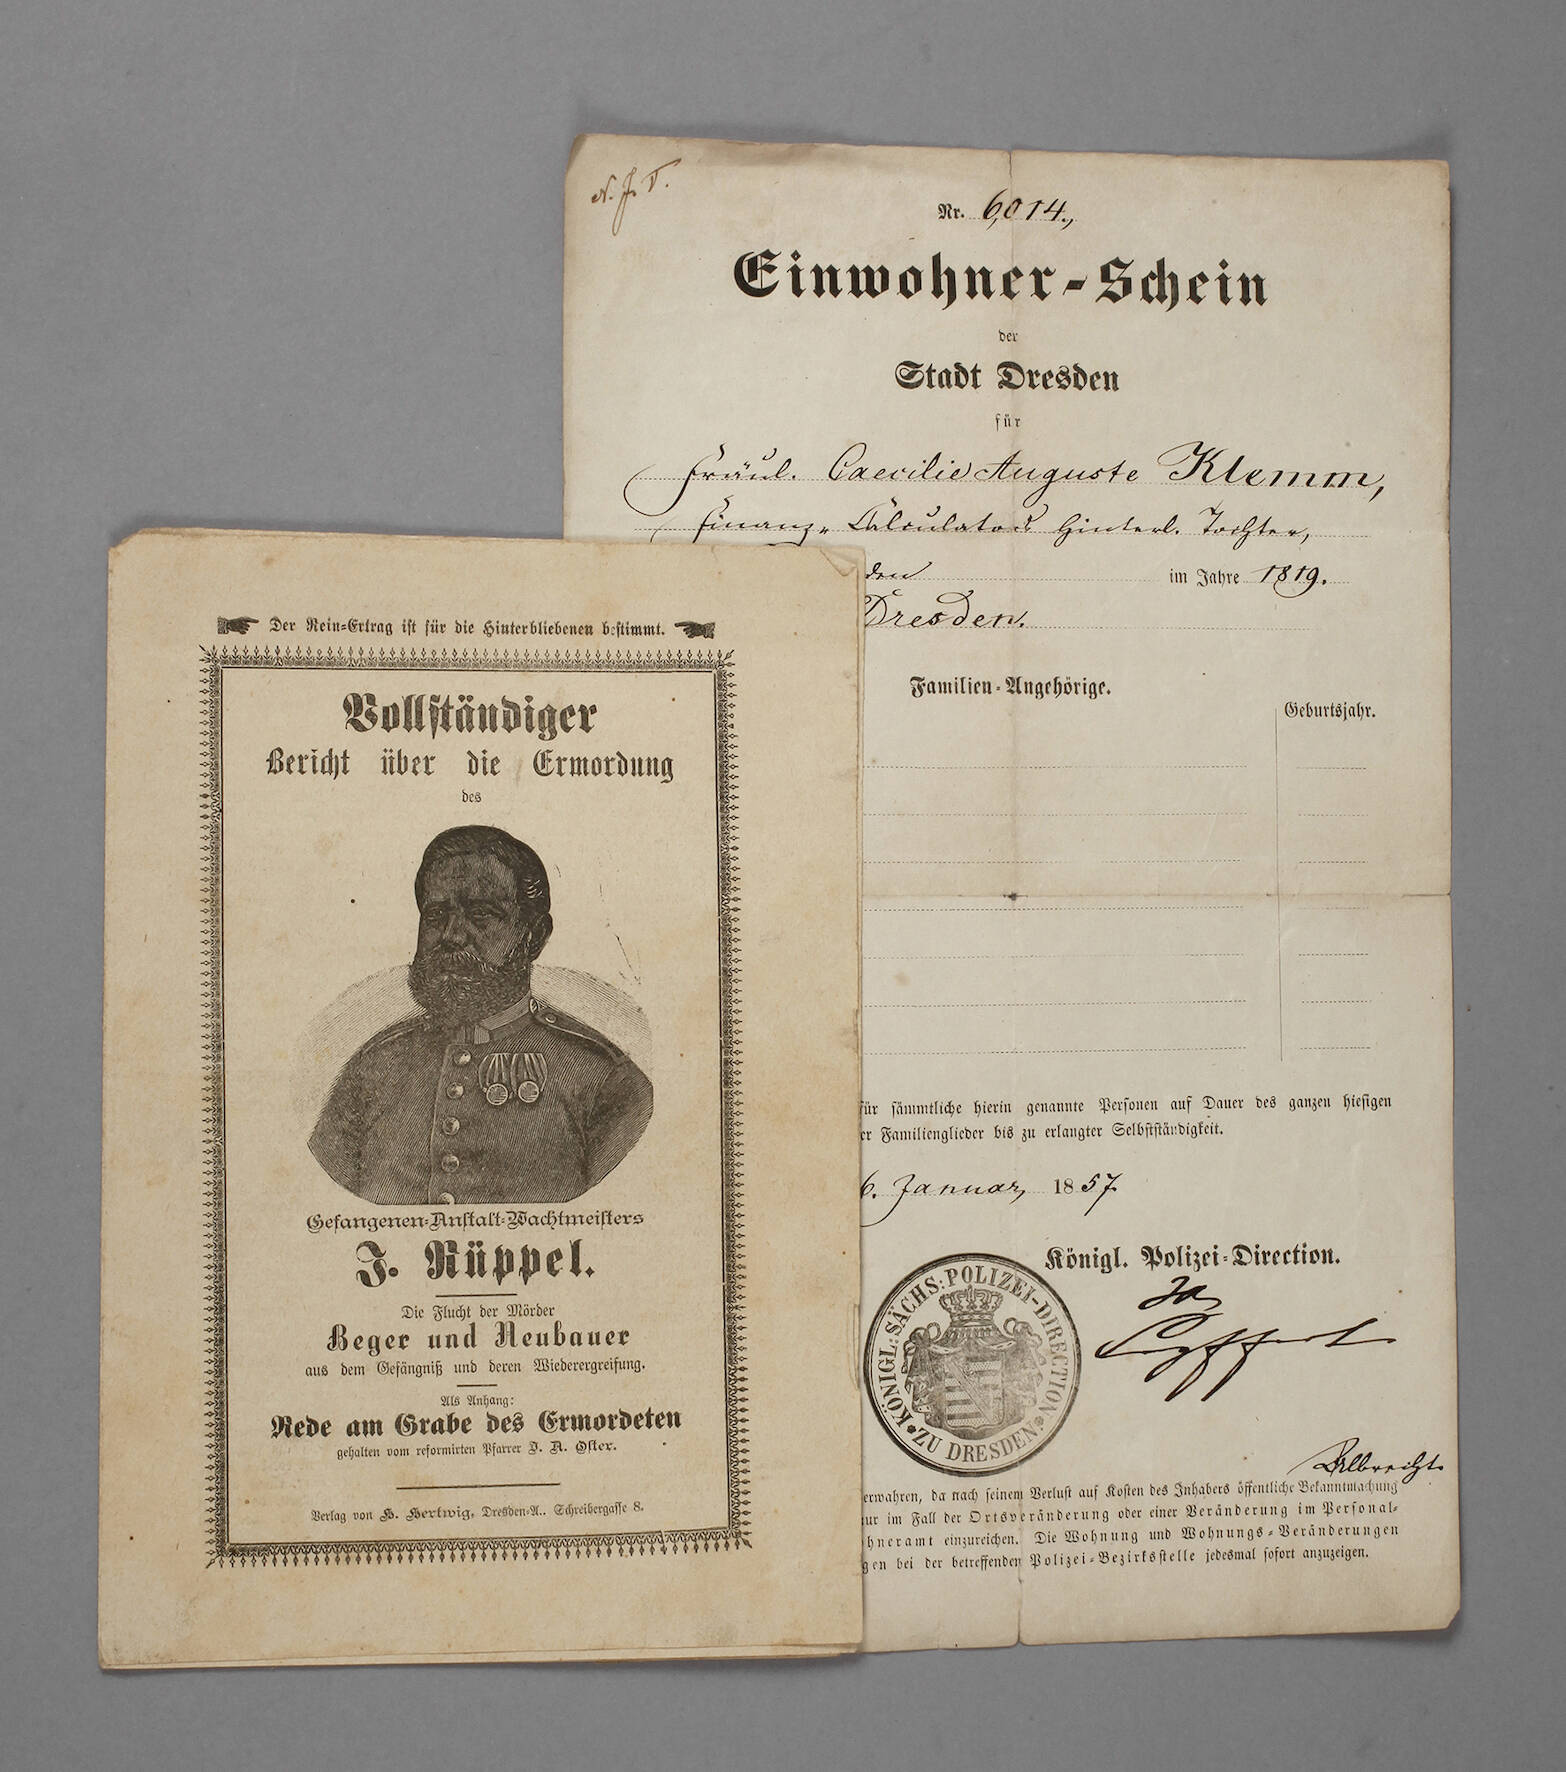 N. J. T.
Nr. 6014.,
Einwohner-Schein
der
Stadt Dresden
für
Fräul. Caecilie Auguste Klemm,
Finanz-Calculators hinterl. Tochter,
den im Jahre 1819.
Dresden.
Familien-Angehörige.
Geburtsjahr.
für sämmtliche hierin genannte Personen auf Dauer des ganzen hiesigen
er Familienglieder bis zu erlangter Selbstständigkeit.
6. Januar, 1857.
Königl. Polizei-Direction.
KÖNIGL: SÄCHS: POLIZEI-DIRECTION
ZU DRESDEN.
Albrecht
erwahren, da nach seinem Verlust auf Kosten des Inhabers öffentliche Bekanntmachung
ur im Fall der Ortsveränderung oder einer Veränderung im Personal-
hneramt einzureichen. Die Wohnung und Wohnungs-Veränderungen
gen bei der betreffenden Polizei-Bezirksstelle jedesmal sofort anzuzeigen.
Der Rein-Ertrag ist für die Hinterbliebenen bestimmt.
Vollständiger
Bericht über die Ermordung
des
Gefangenen-Anstalt-Wachtmeisters
J. Rüppel.
Die Flucht der Mörder
Beger und Neubauer
aus dem Gefängniß und deren Wiederergreifung.
Als Anhang:
Rede am Grabe des Ermordeten
gehalten vom reformirten Pfarrer J. A. Oster.
Verlag von H. Hertwig, Dresden-A., Schreibergasse 8.